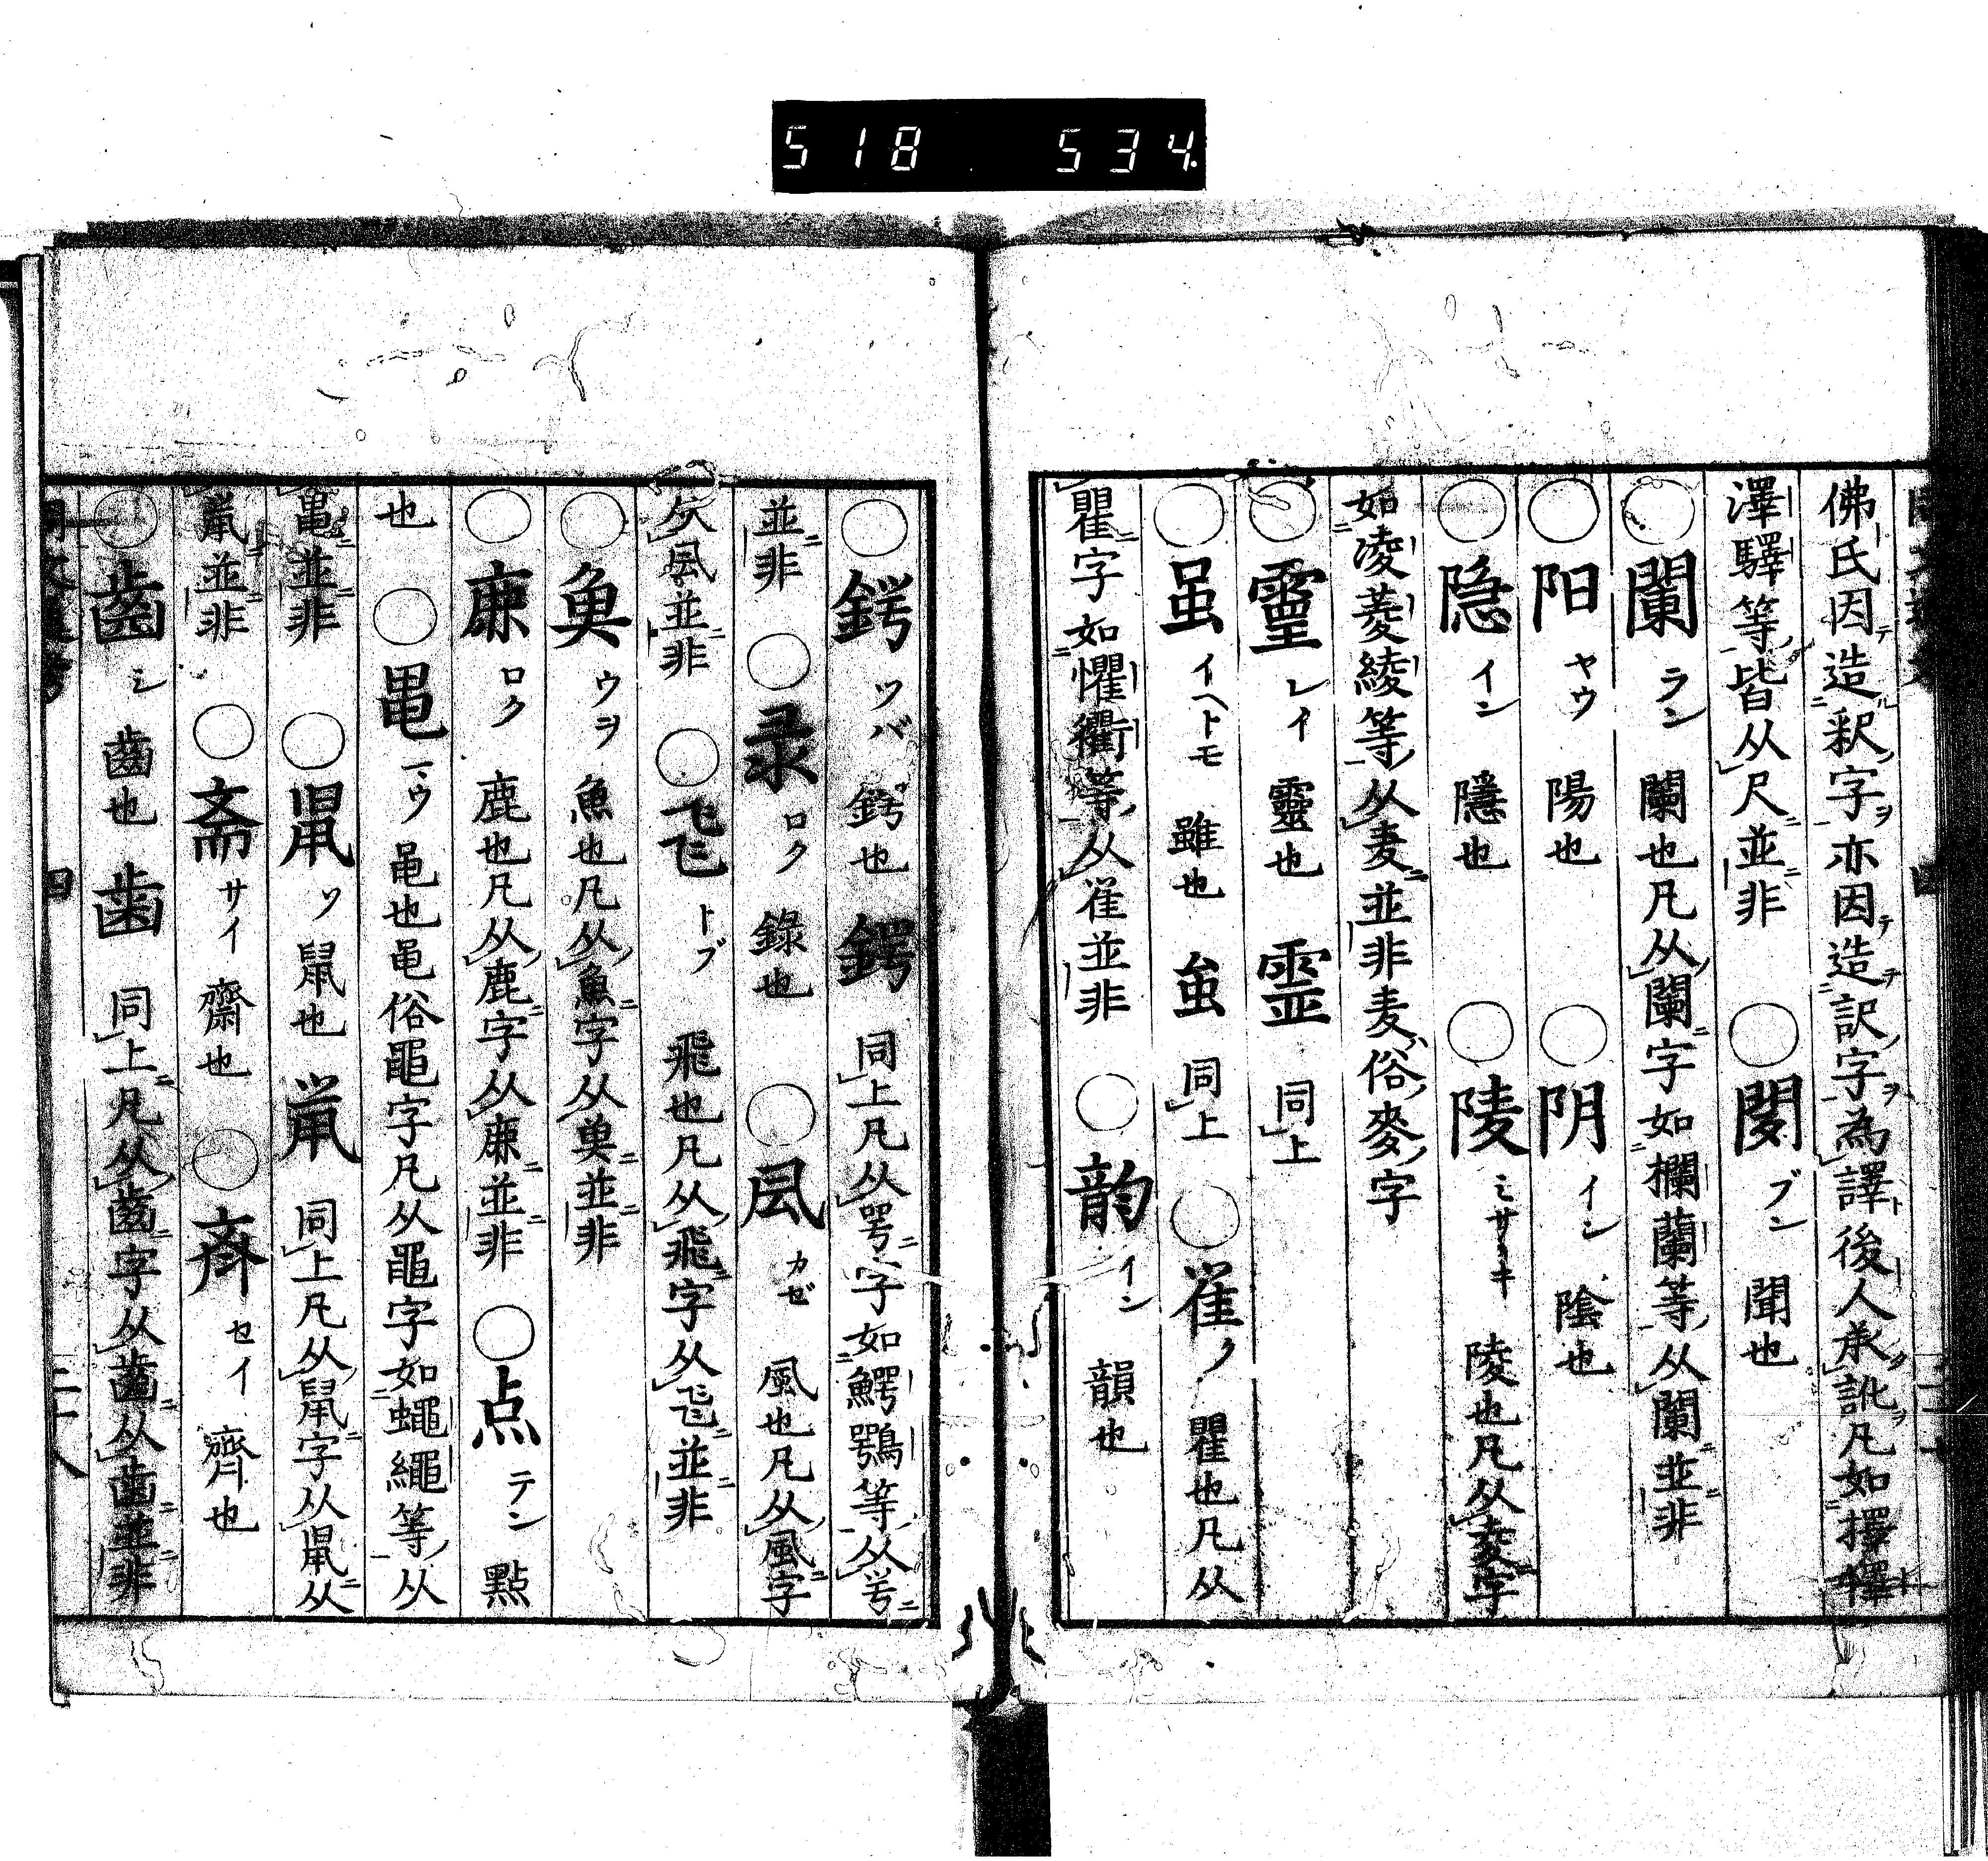 518 534
佛氏因テ造ル二釈字ヲ一亦因テ造テ二訳字ヲ一為譯ト後人承ク訛ヲ凡如擇釋
澤驛等皆从尺並非 ○ 閔 ブン 聞也
○ 闌 ラン 闌也凡从闌字如欄蘭等从闌並非
○ 阳 ヤウ 陽也 ○ 阴 イン 陰也
○ 隠 イン 隱也 ○ 陵 ミサヽキ 陵也凡从夌字
如凌菱綾等从麦並非麦俗麥字
○ 霊 レイ 靈也 霊 同上
○ 虽 イヘトモ 雖也 䖝 同上 ○ 隺 ク 瞿也凡从
瞿字如懼衢等从隺並非 ○ 韵 イン 韻也
○ 鍔 ツバ 鍔也 鍔 同上凡从咢字如鰐鶚等从咢
並非 ○ 录 ロク 錄也 ○ 凨 カゼ 風也凡从風字
攵凨並非 ○ 飞 トブ 飛也凡从飛字从飞並非
○ 𩵋 ウヲ 魚也凡从魚字从𩵋並非
○ 鹿 ロク 鹿也凡从鹿字从鹿並非 ○ 点 テン 點
也 ○ 黾 ミウ 黽也黽俗黽字凡从黽字如蠅繩等从
黾並非 ○ 鼡 ソ 鼠也 鼡 同上凡从鼠字从鼡从
鼡並非 ○ 斋 サイ 齋也 ○ 斉 セイ 齊也
○ 齒 シ 齒也 歯 同上凡从齒字从齒从歯並非